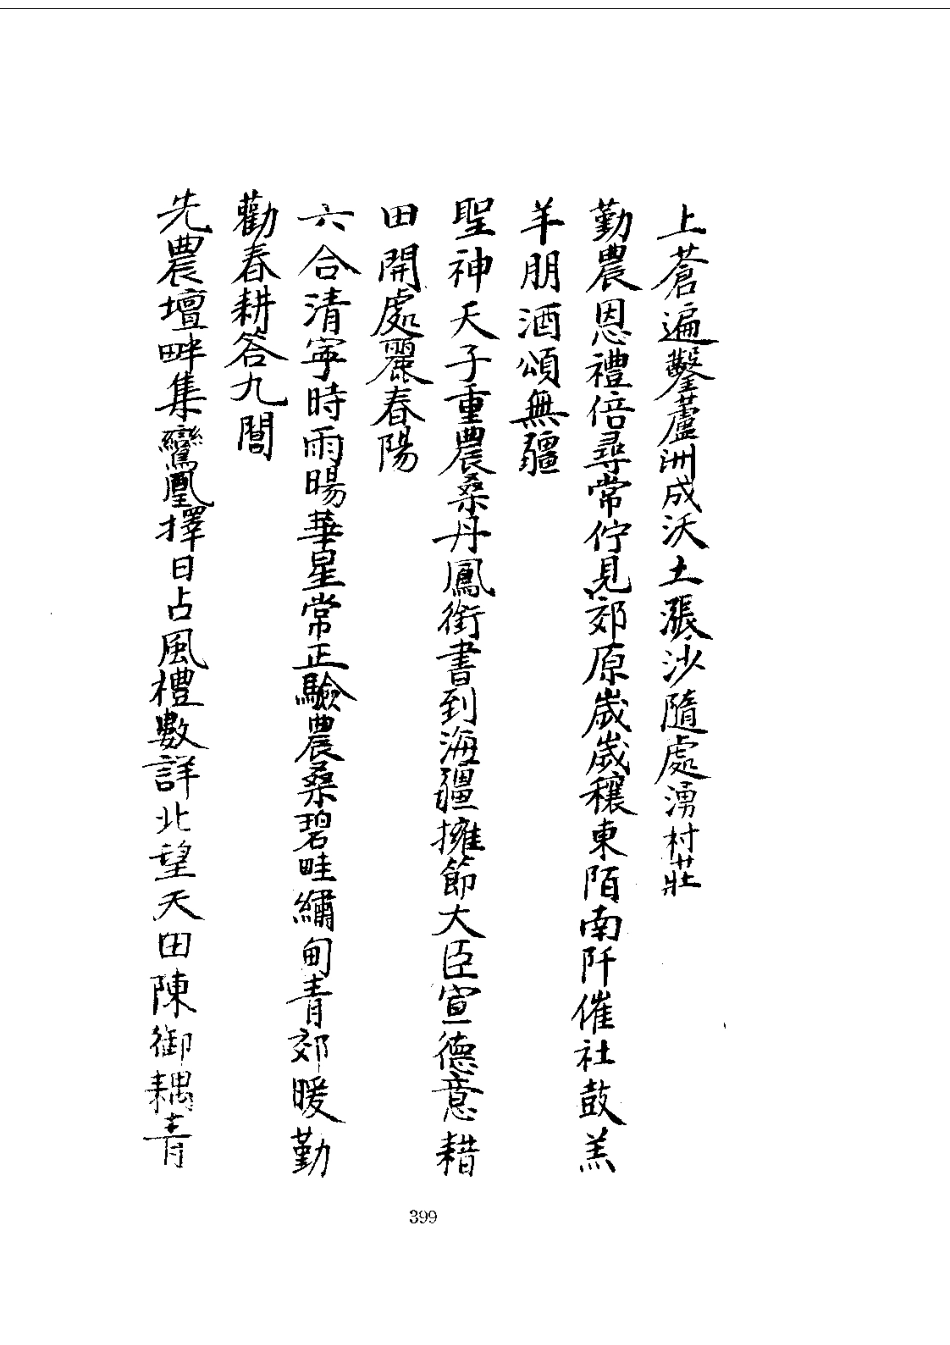 上蒼遍鑿蘆洲成沃土漲沙隨處湧村莊
勤農恩禮倍尋常佇見郊原歲歲穰東陌南阡催社鼓羔
羊朋酒頌無疆
聖神天子重農桑丹鳳銜書到海疆擁節大臣宣德意耤
田開處麗春陽
六合清寧時雨暘華星常正驗農桑碧畦繡甸青郊暖勤
勸春耕答九閶
先農壇畔集鸞凰擇日占風禮數詳北望天田陳御耦青
399